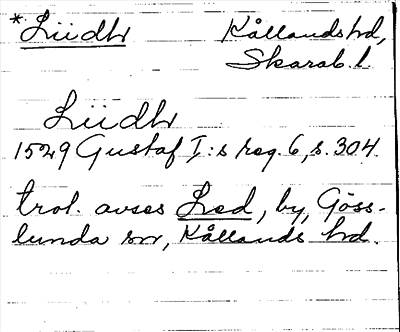 *Liidh Kållands hd,
Skarab. l.
Liidh
1529 Gustaf I:s reg. 6, s. 304.
trol. avses Lid, by, Göss-
lunda sn, Kållands hd.